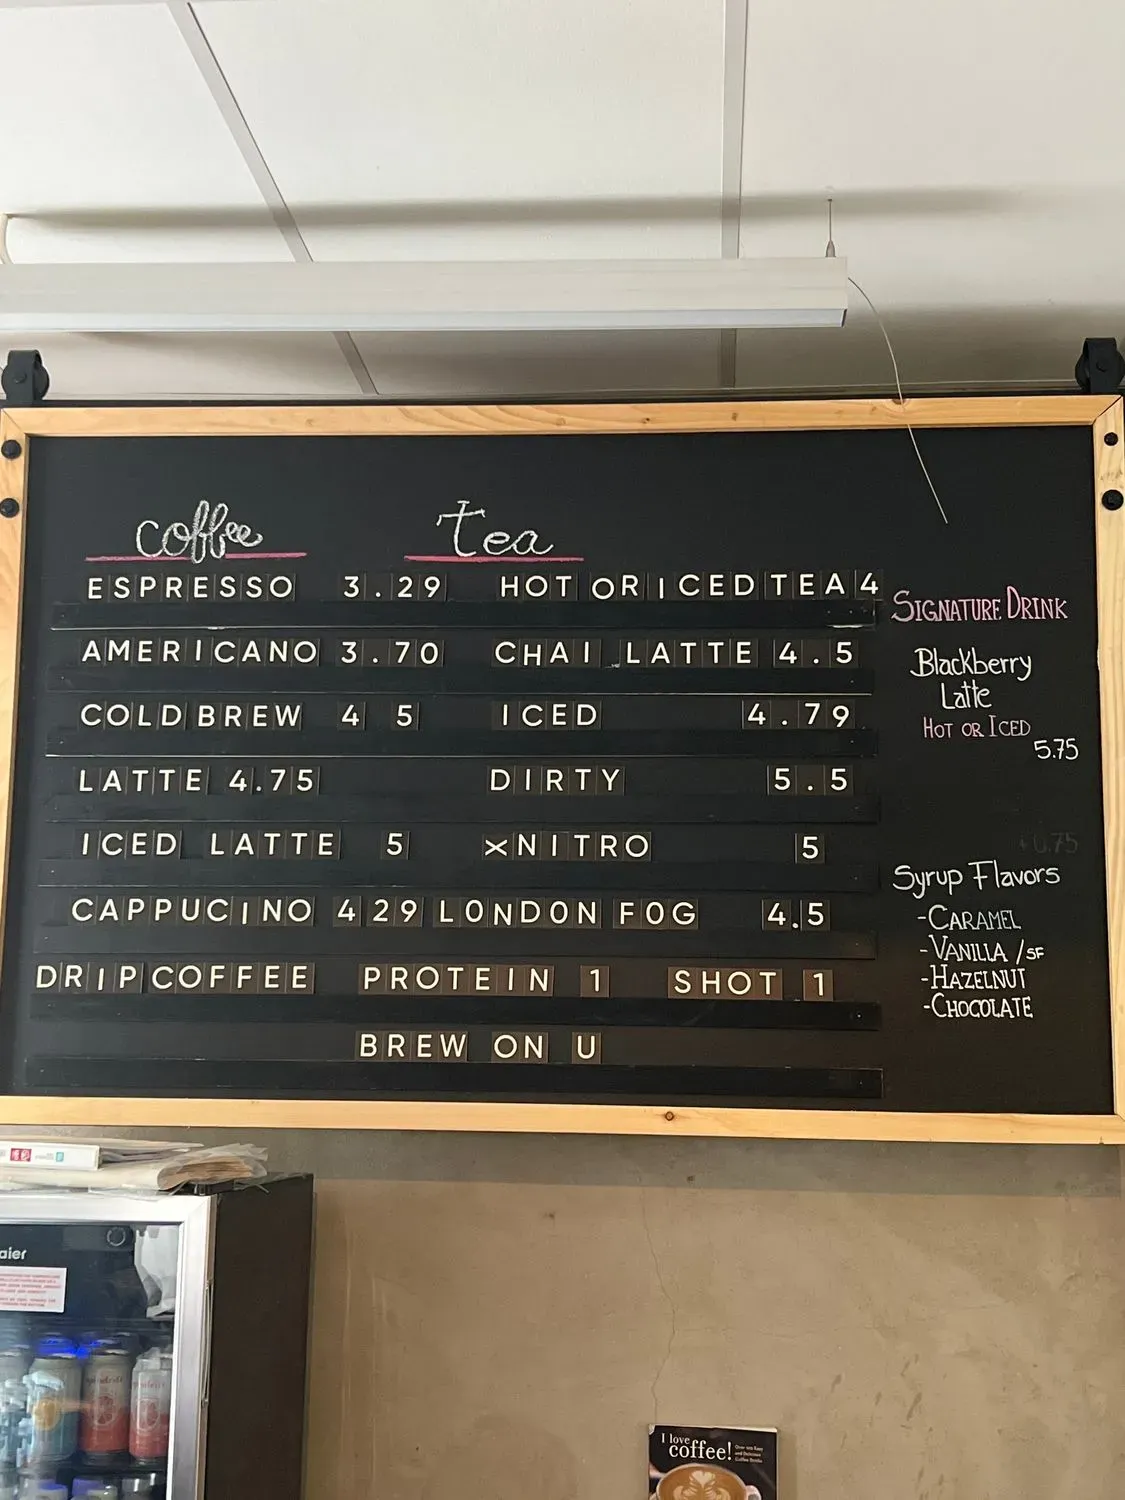 coffee
ESPRESSO 3.29
AMERICANO 3.70
COLD BREW 4 5
LATTE 4.75
ICED LATTE 5
CAPPUCINO 429
DRIP COFFEE
tea
HOT OR ICED TEA 4
CHAI LATTE 4.5
ICED 4.79
DIRTY 5.5
xNITRO 5
LONDON FOG 4.5
PROTEIN 1 SHOT 1
BREW ON U
SIGNATURE DRINK
Blackberry
Latte
HOT OR ICED
5.75
+0.75
Syrup Flavors
-CARAMEL
-VANILLA /SF
-HAZELNUT
-CHOCOLATE
aier
I love
coffee!